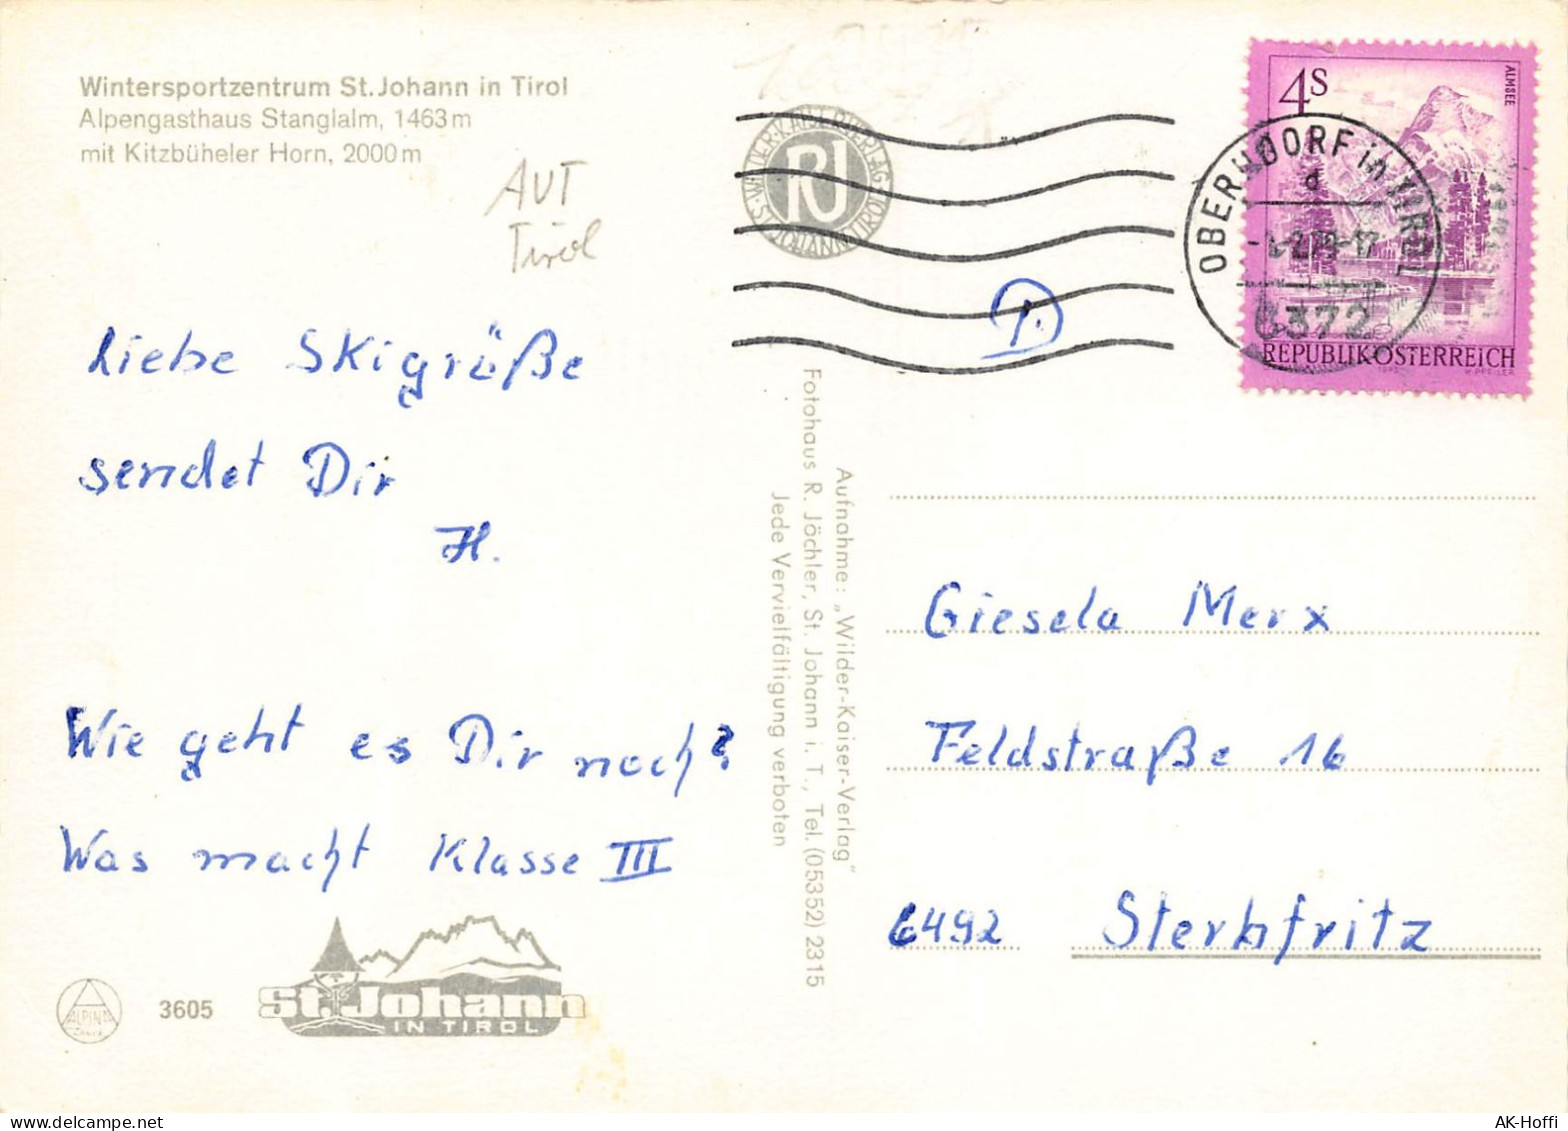 Wintersportzentrum St. Johann in Tirol
Alpengasthaus Stanglalm, 1463 m
mit Kitzbüheler Horn, 2000 m
AUT
Tirol
Liebe Skigrüße
sendet Dir
H.
Wie geht es Dir noch?
Was macht Klasse III
ALPINA
3605
St. Johann
IN TIROL
WILDER-KAISER-VERLAG
ST. JOHANN TIROL
RJ
Aufnahme: „Wilder-Kaiser-Verlag"
Fotohaus R. Jöchler, St. Johann i. T., Tel. (05352) 2315
Jede Vervielfältigung verboten
4S
ALMSEE
REPUBLIK ÖSTERREICH
OBERNDORF in TIROL
d
6372
Giesela Merx
Feldstraße 16
6492 Sterbfritz
AK-Hoffi